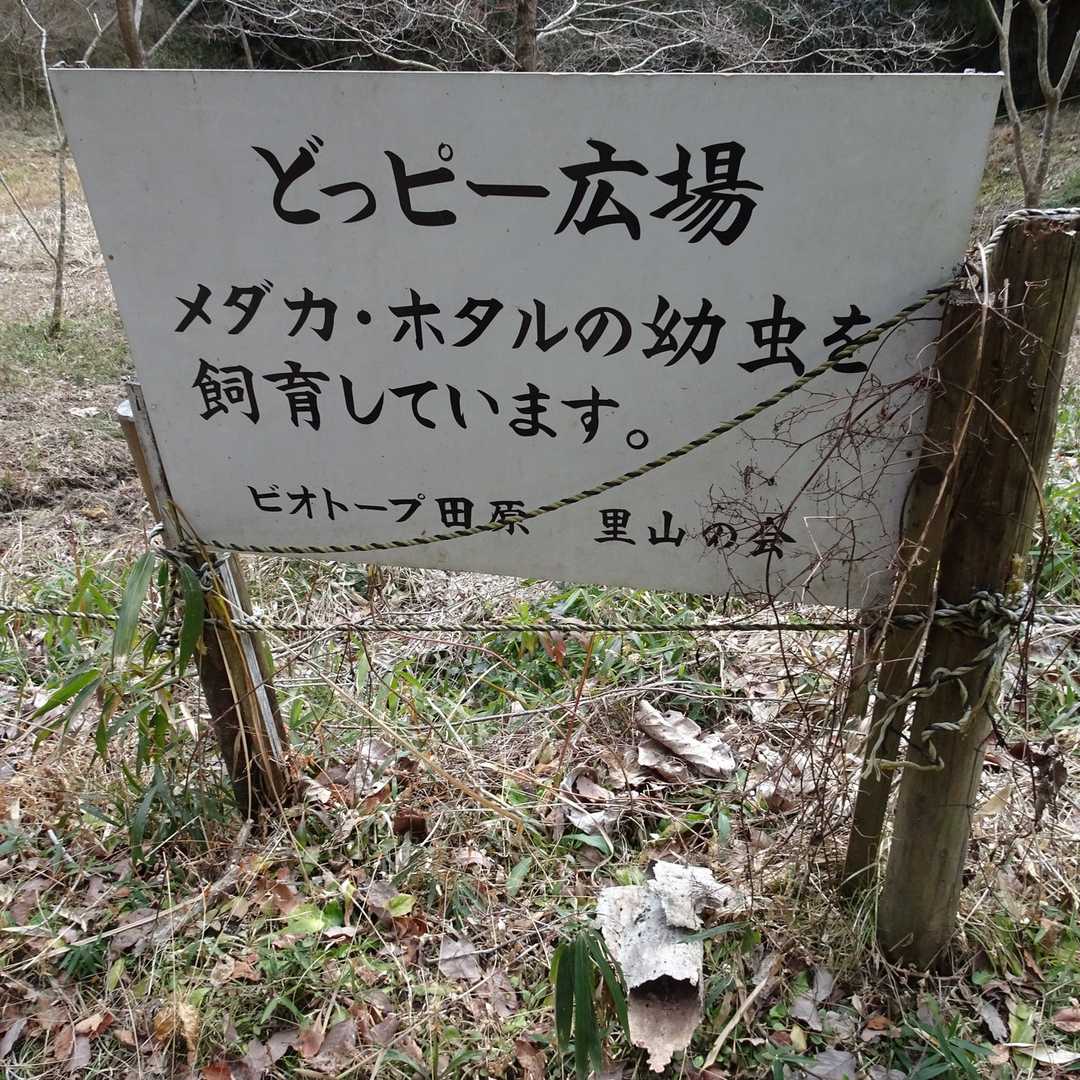 どっピー広場
メダカ・ホタルの幼虫を
飼育しています。
ビオトープ田原　里山の会